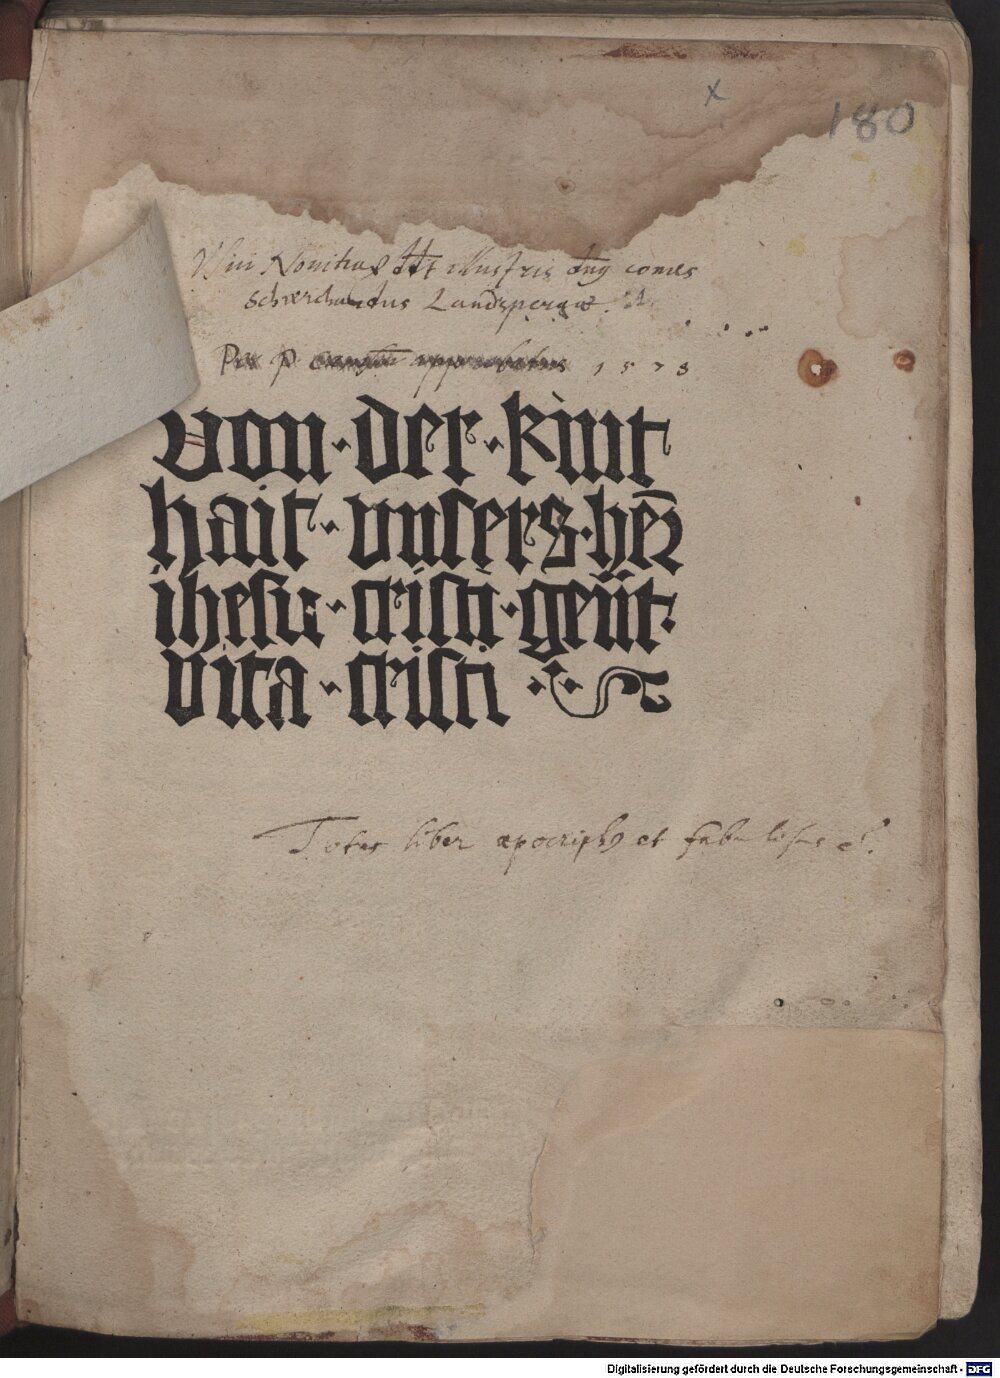 180
illustris comes
Per P approbatus 1573
Von · der · kint
hait · unsers · hen̄
ihesu · cristi · genāt ·
vita · cristi
Totus liber apocriphus et fabulosus e.
Digitalisierung gefördert durch die Deutsche Forschungsgemeinschaft - DFG